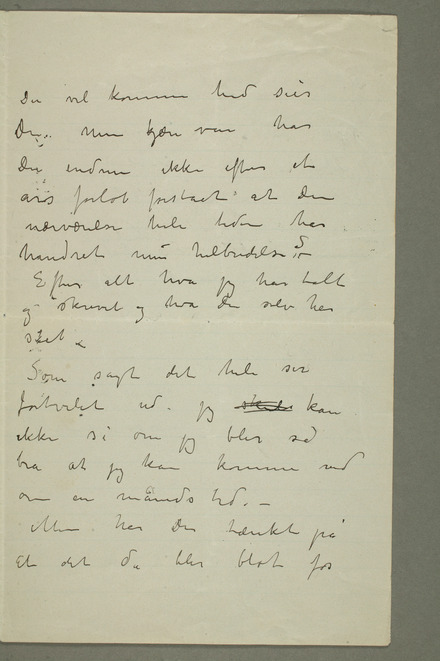 Du vil komme hid siér
Du. Men kjære ven har
Du endnu ikke efter et
års forløb forstået at Din
nærværelse hele tiden har
hindret min helbredelse
Efter alt hva jeg har talt
og skrevet og hva Du selv har
set
Som sagt det hele ser
fortvilet ud. jeg kan
ikke si om jeg blir så
bra at jeg kan komme ned
om en måneds tid. –
Men har Du tænkt på
at det da blir blot for